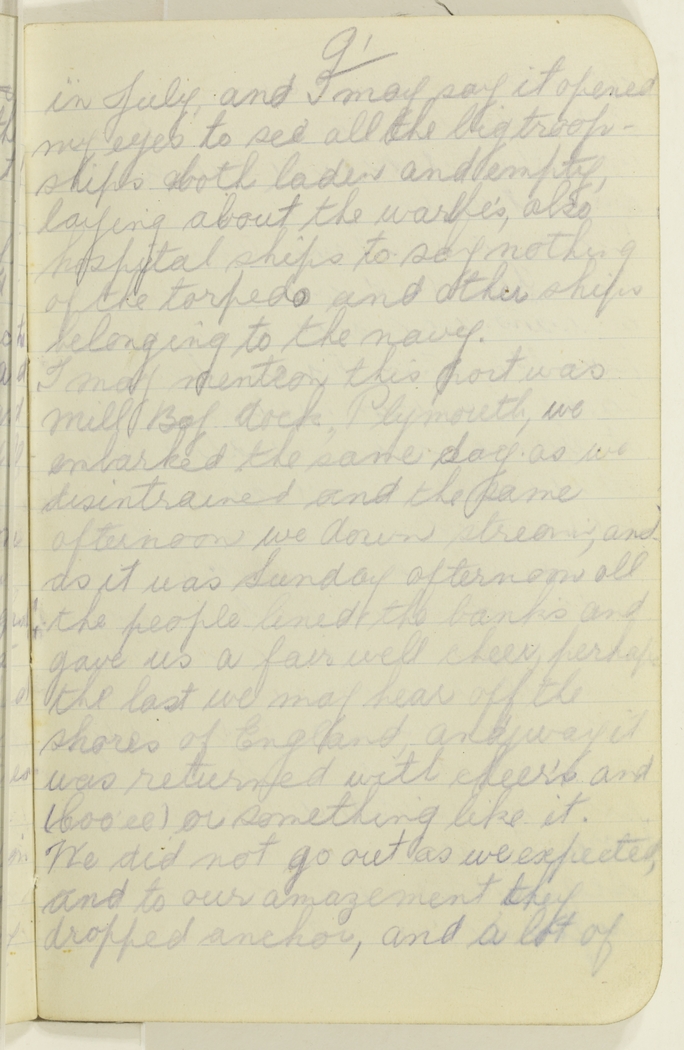 9
in July, and I may say it opened
my eyes to see all the big troop-
ships both laden and empty,
laying about the warfes, also
hospytal ships to say nothing
of the torpedo and other ships
belonging to the navy.
I may mention this port was
Mill Bay dock, Plymouth, we
embarked the same day as we
disintrained and the same
afternoon we down stream, and
as it was Sunday afternoon all
the people lined the banks and
gave us a fair well cheer, perhaps
the last we may hear off the
shores of England, anyway it
was returned with cheers and
(booee) or something like it.
We did not go out as we expected,
and to our amazement they
dropped anchor, and a lot of